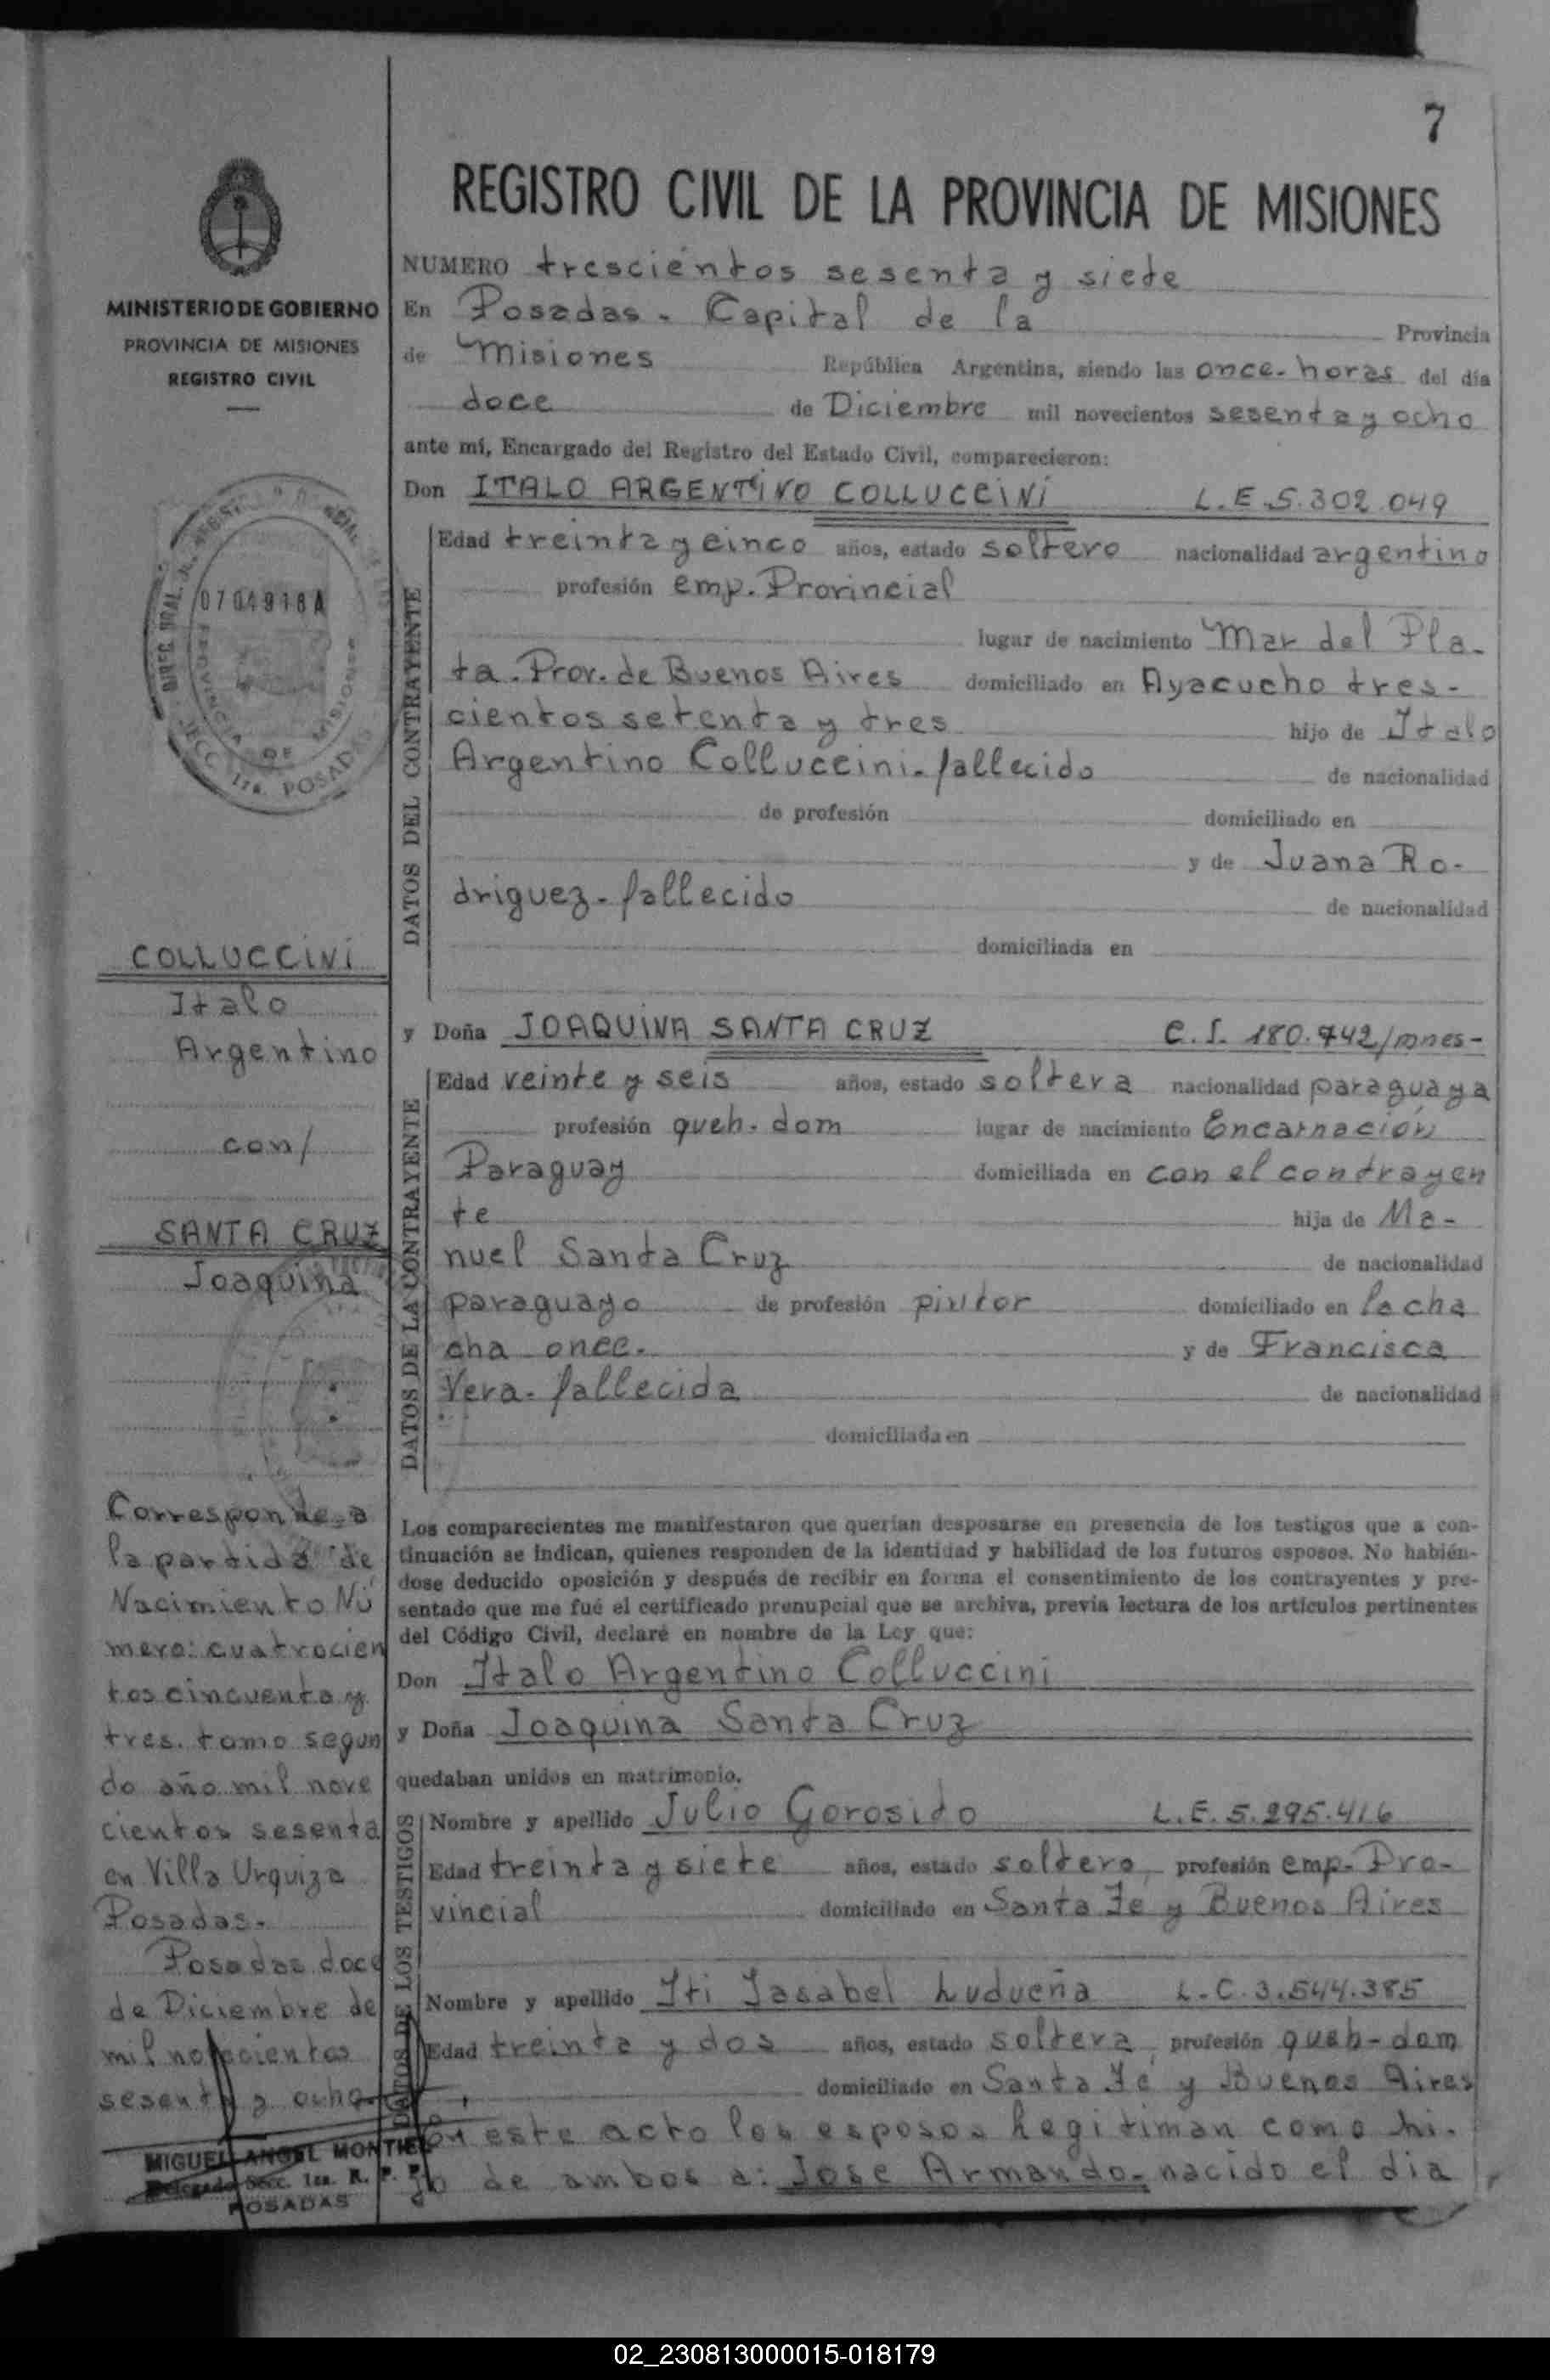 7
REGISTRO CIVIL DE LA PROVINCIA DE MISIONES
MINISTERIO DE GOBIERNO
PROVINCIA DE MISIONES
REGISTRO CIVIL
0704918A
PROVINCIA DE MISIONES
SECC. 1ra. POSADAS
COLLUCCINI
Italo
Argentino
con/
SANTA CRUZ
Joaquina
Corresponde a
la partida de
Nacimiento Nú
mero: cuatrocien
tos cincuenta y
tres. tomo segun
do año mil nove
cientos sesenta
en Villa Urquiza
Posadas.
Posadas doce
de Diciembre de
mil novecientos
sesenta y ocho
MIGUEL ANGEL MONTIEL
Delegado Secc. 1ra. R. P. P.
POSADAS
NUMERO trescientos sesenta y siete
En Posadas. Capital de la Provincia
de Misiones República Argentina, siendo las once. horas del día
doce de Diciembre mil novecientos sesenta y ocho
ante mí, Encargado del Registro del Estado Civil, comparecieron:
Don ITALO ARGENTINO COLLUCCINI L.E.5.302.049
DATOS DEL CONTRAYENTE
Edad treinta y cinco años, estado soltero nacionalidad argentino
profesión emp. Provincial
lugar de nacimiento Mar del Pla-
ta. Prov. de Buenos Aires domiciliado en Ayacucho tres-
cientos setenta y tres hijo de Italo
Argentino Colluccini. fallecido de nacionalidad
de profesión domiciliado en
y de Juana Ro-
driguez. fallecido de nacionalidad
domiciliada en
y Doña JOAQUINA SANTA CRUZ C.I. 180.742/mnes-
DATOS DE LA CONTRAYENTE
Edad veinte y seis años, estado soltera nacionalidad paraguaya
profesión queh. dom lugar de nacimiento Encarnación
Paraguay domiciliada en con el contrayen
te hija de Ma-
nuel Santa Cruz de nacionalidad
paraguayo de profesión pintor domiciliado en la cha
cha once. y de Francisca
Vera. fallecida de nacionalidad
domiciliada en
Los comparecientes me manifestaron que querían desposarse en presencia de los testigos que a con-
tinuación se indican, quienes responden de la identidad y habilidad de los futuros esposos. No habién-
dose deducido oposición y después de recibir en forma el consentimiento de los contrayentes y pre-
sentado que me fué el certificado prenupcial que se archiva, previa lectura de los artículos pertinentes
del Código Civil, declaré en nombre de la Ley que:
Don Italo Argentino Colluccini
y Doña Joaquina Santa Cruz
quedaban unidos en matrimonio.
DATOS DE LOS TESTIGOS
Nombre y apellido Julio Gorosido L.E.5.295.416
Edad treinta y siete años, estado soltero, profesión emp. Pro-
vincial domiciliado en Santa Fe y Buenos Aires
Nombre y apellido Iti Isabel Ludueña L.C.3.544.385
Edad treinta y dos años, estado soltera, profesión queh-dom
domiciliado en Santa Fe y Buenos Aires
En este acto los esposos legitiman como hi-
jo de ambos a: Jose Armando. nacido el día
02_230813000015-018179